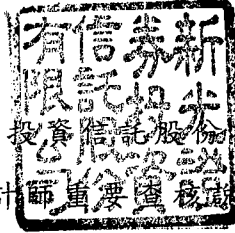 新光證
券投資
信託股份
有限公司
投資信託股份
計師重要查核